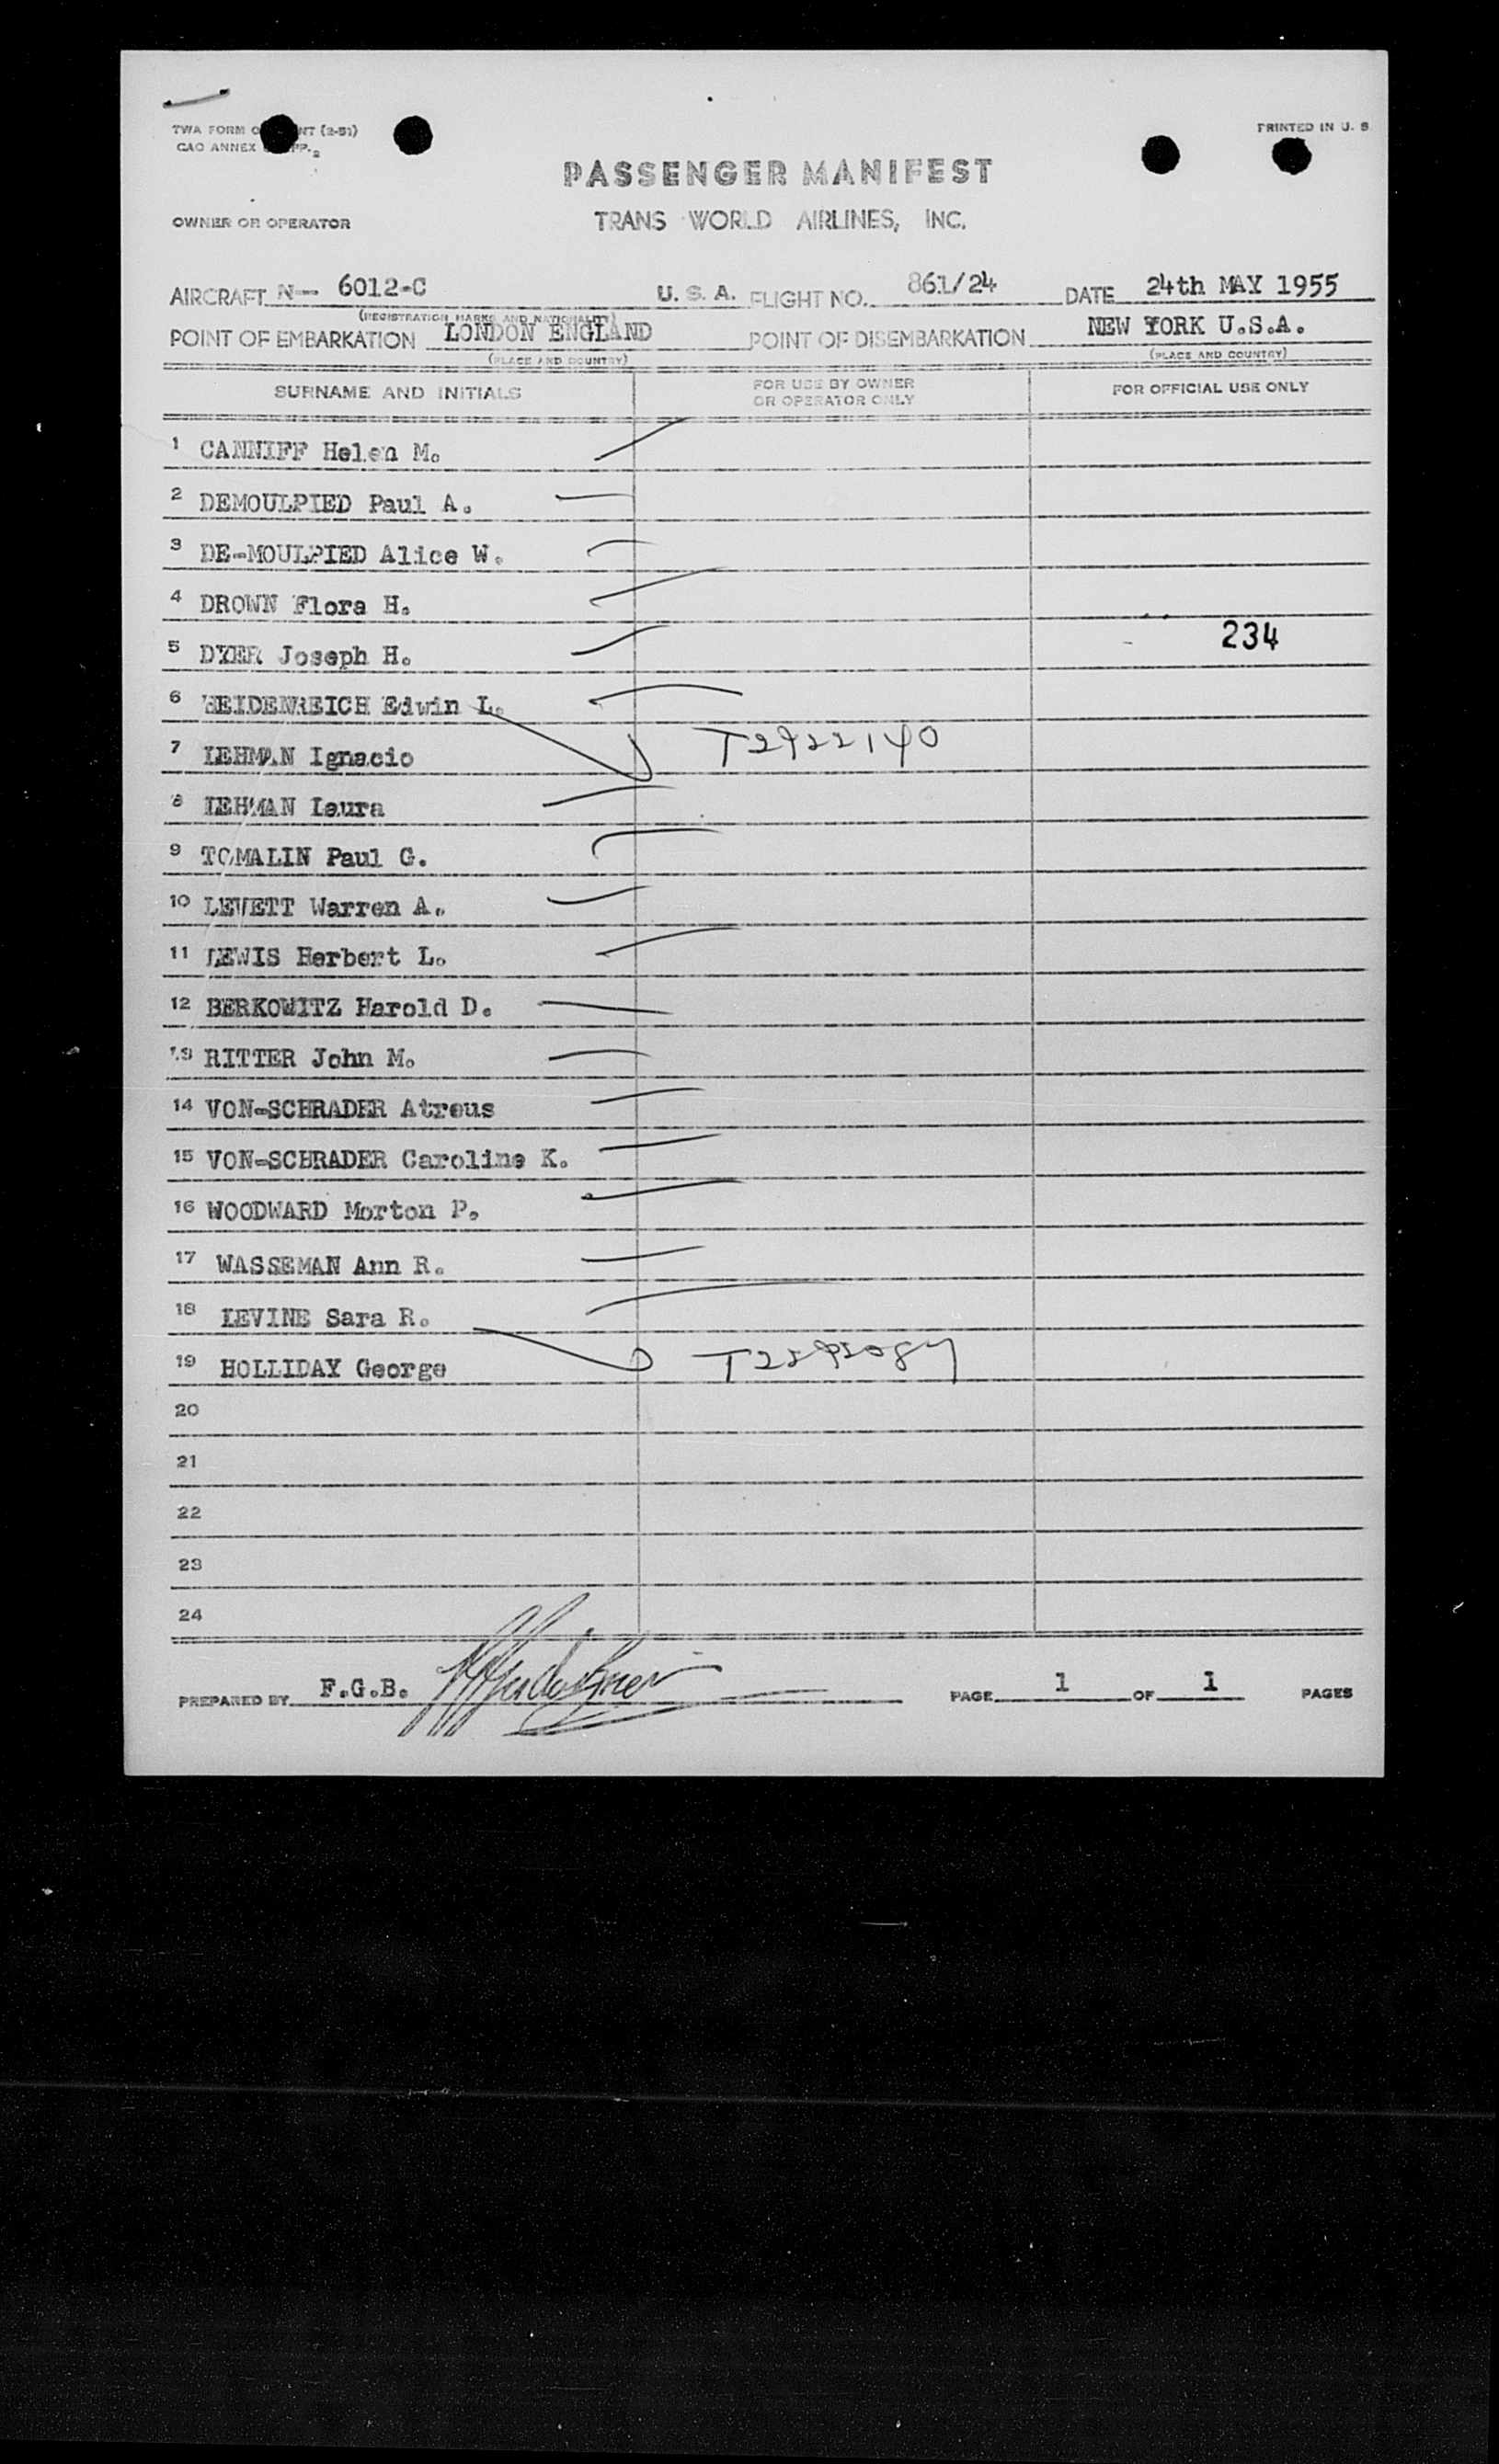 TWA FORM
PRINTED IN U. S.
PASSENGER MANIFEST
OWNER OR OPERATOR
TRANS WORLD AIRLINES, INC.
AIRCRAFT N- 6012-C U. S. A. FLIGHT NO. 861/24 DATE 24th MAY 1955
(REGISTRATION MARKS AND NATIONALITY)
POINT OF EMBARKATION LONDON ENGLAND POINT OF DISEMBARKATION NEW YORK U.S.A.
(PLACE AND COUNTRY) (PLACE AND COUNTRY)
SURNAME AND INITIALS FOR USE BY OWNER OR OPERATOR ONLY FOR OFFICIAL USE ONLY
1 CANNIFF Helen M.
2 DEMOULPIED Paul A.
3 DE-MOULPIED Alice W.
4 DROWN Flora H.
5 DYER Joseph H. 234
6 HEIDENREICH Edwin L.
7 LEHMAN Ignacio T2922140
8 LEHMAN Laura
9 TOMALIN Paul G.
10 LEVETT Warren A.
11 LEWIS Herbert L.
12 BERKOWITZ Harold D.
13 RITTER John M.
14 VON-SCHRADER Atreus
15 VON-SCHRADER Caroline K.
16 WOODWARD Morton P.
17 WASSEMAN Ann R.
18 LEVINE Sara R.
19 HOLLIDAY George
20
21
22
23
24
PREPARED BY F.G.B. PAGE 1 OF 1 PAGES